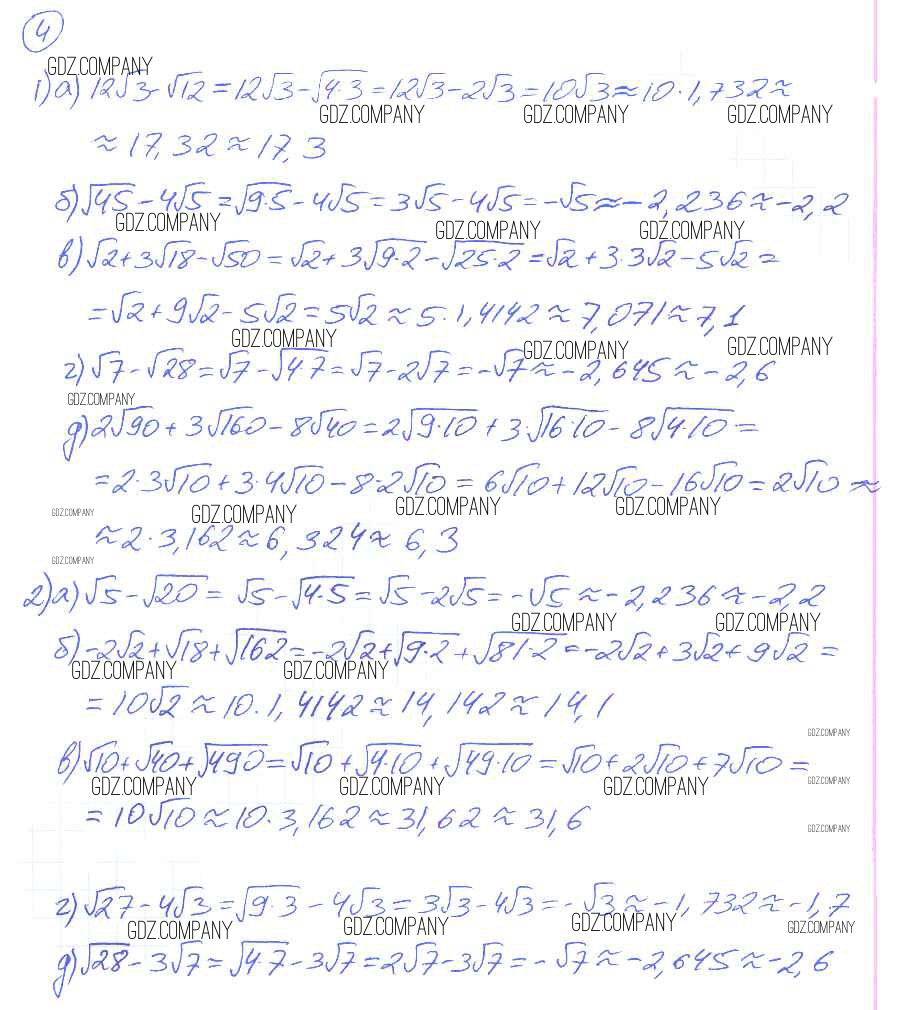 4
GDZ.COMPANY
1) а) 12√3 - √12 = 12√3 - √4·3 = 12√3 - 2√3 = 10√3 ≈ 10·1,732 ≈
GDZ.COMPANY GDZ.COMPANY GDZ.COMPANY
≈ 17,32 ≈ 17,3
б) √45 - 4√5 = √9·5 - 4√5 = 3√5 - 4√5 = -√5 ≈ -2,236 ≈ -2,2
GDZ.COMPANY GDZ.COMPANY GDZ.COMPANY
в) √2 + 3√18 - √50 = √2 + 3√9·2 - √25·2 = √2 + 3·3√2 - 5√2 =
= √2 + 9√2 - 5√2 = 5√2 ≈ 5·1,4142 ≈ 7,071 ≈ 7,1
GDZ.COMPANY GDZ.COMPANY GDZ.COMPANY
г) √7 - √28 = √7 - √4·7 = √7 - 2√7 = -√7 ≈ -2,645 ≈ -2,6
GDZ.COMPANY
д) 2√90 + 3√160 - 8√40 = 2√9·10 + 3·√16·10 - 8√4·10 =
= 2·3√10 + 3·4√10 - 8·2√10 = 6√10 + 12√10 - 16√10 = 2√10 ≈
GDZ.COMPANY GDZ.COMPANY GDZ.COMPANY GDZ.COMPANY
≈ 2·3,162 ≈ 6,324 ≈ 6,3
GDZ.COMPANY
2) а) √5 - √20 = √5 - √4·5 = √5 - 2√5 = -√5 ≈ -2,236 ≈ -2,2
GDZ.COMPANY GDZ.COMPANY
б) -2√2 + √18 + √162 = -2√2 + √9·2 + √81·2 = -2√2 + 3√2 + 9√2 =
GDZ.COMPANY GDZ.COMPANY
= 10√2 ≈ 10·1,4142 ≈ 14,142 ≈ 14,1
GDZ.COMPANY
в) √10 + √40 + √490 = √10 + √4·10 + √49·10 = √10 + 2√10 + 7√10 =
GDZ.COMPANY GDZ.COMPANY GDZ.COMPANY GDZ.COMPANY
= 10√10 ≈ 10·3,162 ≈ 31,62 ≈ 31,6
GDZ.COMPANY
г) √27 - 4√3 = √9·3 - 4√3 = 3√3 - 4√3 = -√3 ≈ -1,732 ≈ -1,7
GDZ.COMPANY GDZ.COMPANY GDZ.COMPANY GDZ.COMPANY
д) √28 - 3√7 = √4·7 - 3√7 = 2√7 - 3√7 = -√7 ≈ -2,645 ≈ -2,6